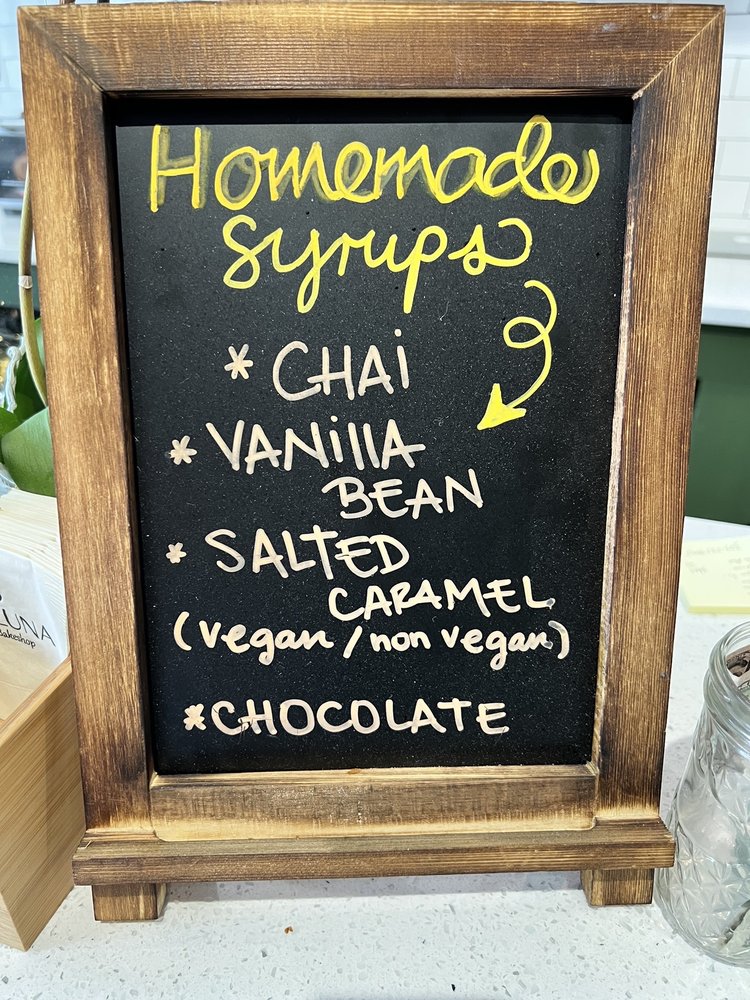 Homemade
Syrups
* CHAi
* VANillA
BEAN
* SALTED
CARAMEL
(vegan / non vegan)
* CHOCOLATE
LUNA
Bakeshop